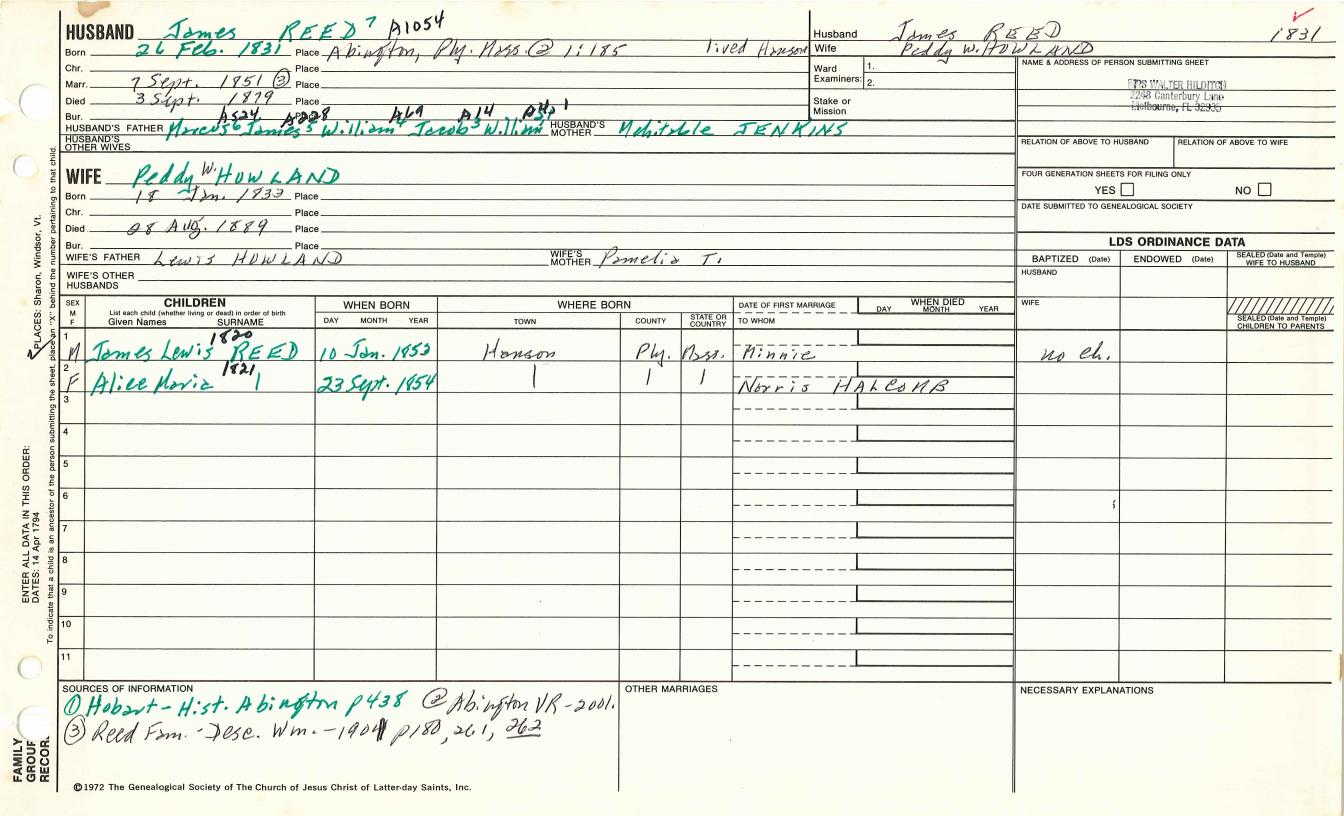 HUSBAND James REED 7 A1054
Born 26 Feb. 1831 Place Abington, Ply. Mass. @ 1:185 lived Hanson
Chr. Place
Marr. 7 Sept. 1851 ③ Place
Died 3 Sept. 1879 Place
Bur. Place
A524 A228 A69 A14 A4
HUSBAND'S FATHER Marcus6 James5 William4 Jacob3 William HUSBAND'S MOTHER Mehitable JENKINS
HUSBAND'S OTHER WIVES
WIFE Peddy W. HOWLAND
Born 18 Jan. 1833 Place
Chr. Place
Died 28 Aug. 1889 Place
Bur. Place
WIFE'S FATHER Lewis HOWLAND WIFE'S MOTHER Pamelia T.
WIFE'S OTHER HUSBANDS
Husband James REED 1831
Wife Peddy W. HOWLAND
Ward Examiners: 1.
2.
Stake or Mission
NAME & ADDRESS OF PERSON SUBMITTING SHEET
WALTER HILDITCH
Canterbury Lane
Melbourne, FL 32935
RELATION OF ABOVE TO HUSBAND RELATION OF ABOVE TO WIFE
FOUR GENERATION SHEETS FOR FILING ONLY
YES NO
DATE SUBMITTED TO GENEALOGICAL SOCIETY
LDS ORDINANCE DATA
BAPTIZED (Date) ENDOWED (Date) SEALED (Date and Temple) WIFE TO HUSBAND
HUSBAND
WIFE
SEALED (Date and Temple) CHILDREN TO PARENTS
SEX M F CHILDREN WHEN BORN WHERE BORN DATE OF FIRST MARRIAGE WHEN DIED
List each child (whether living or dead) in order of birth
Given Names SURNAME DAY MONTH YEAR TOWN COUNTY STATE OR COUNTRY TO WHOM DAY MONTH YEAR
1 M James Lewis REED 1820 10 Jan. 1852 Hanson Ply. Mass. Minnie no ch.
2 F Alice Maria 1821 23 Sept. 1854 Norris HALCOMB
3
4
5
6
7
8
9
10
11
SOURCES OF INFORMATION
① Hobart - Hist. Abington p438 @ Abington VR-2001.
③ Reed Fam. - Desc. Wm. - 1901 p180, 261, 262
OTHER MARRIAGES
NECESSARY EXPLANATIONS
©1972 The Genealogical Society of The Church of Jesus Christ of Latter-day Saints, Inc.
FAMILY GROUP RECOR
ENTER ALL DATA IN THIS ORDER:
DATES: 14 Apr 1794
PLACES: Sharon, Windsor, Vt.
To indicate that a child is an ancestor of the person submitting the sheet, place an "X" behind the number pertaining to that child.